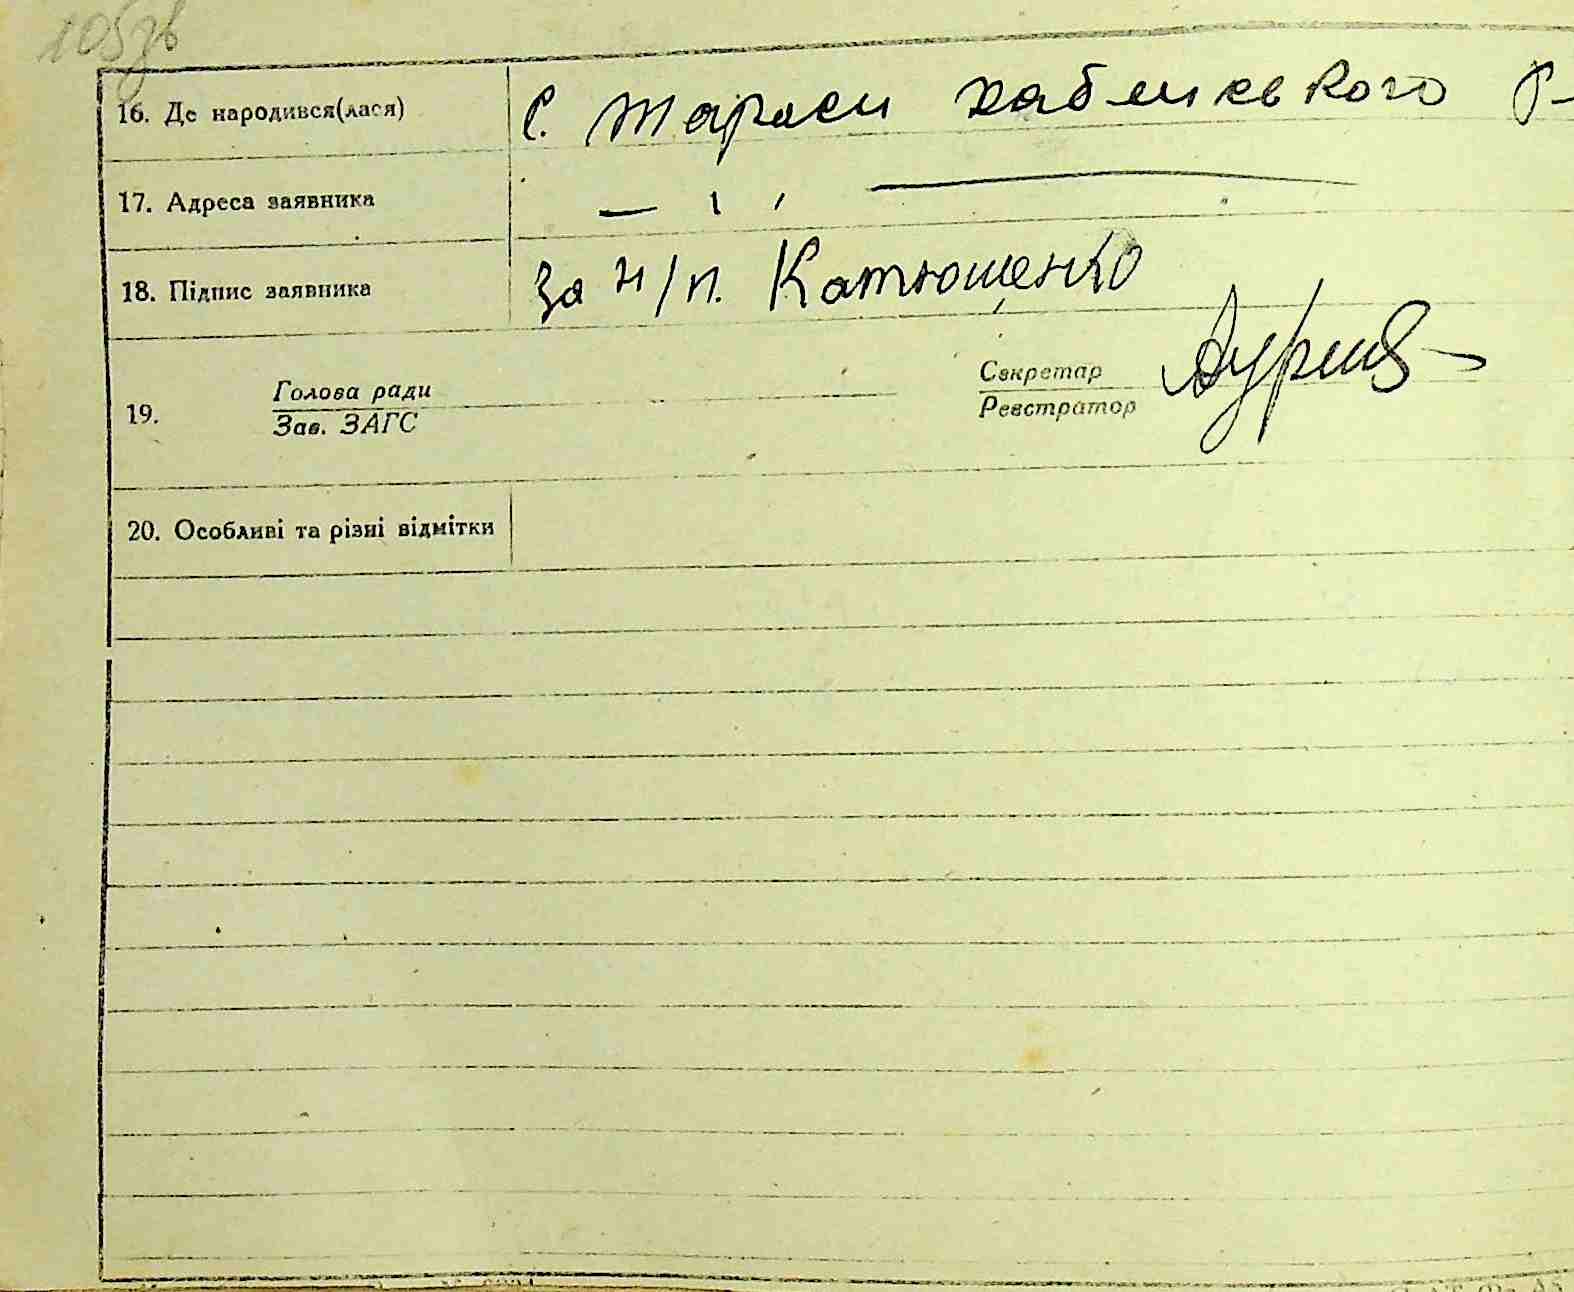 105зв
16. Де народився(лася) с. Тараси хабликвкого р-
17. Адреса заявника — і ,
18. Підпис заявника за н/п. Катющенко
19. Голова ради Секретар
Зав. ЗАГС Реєстратор
20. Особливі та різні відмітки